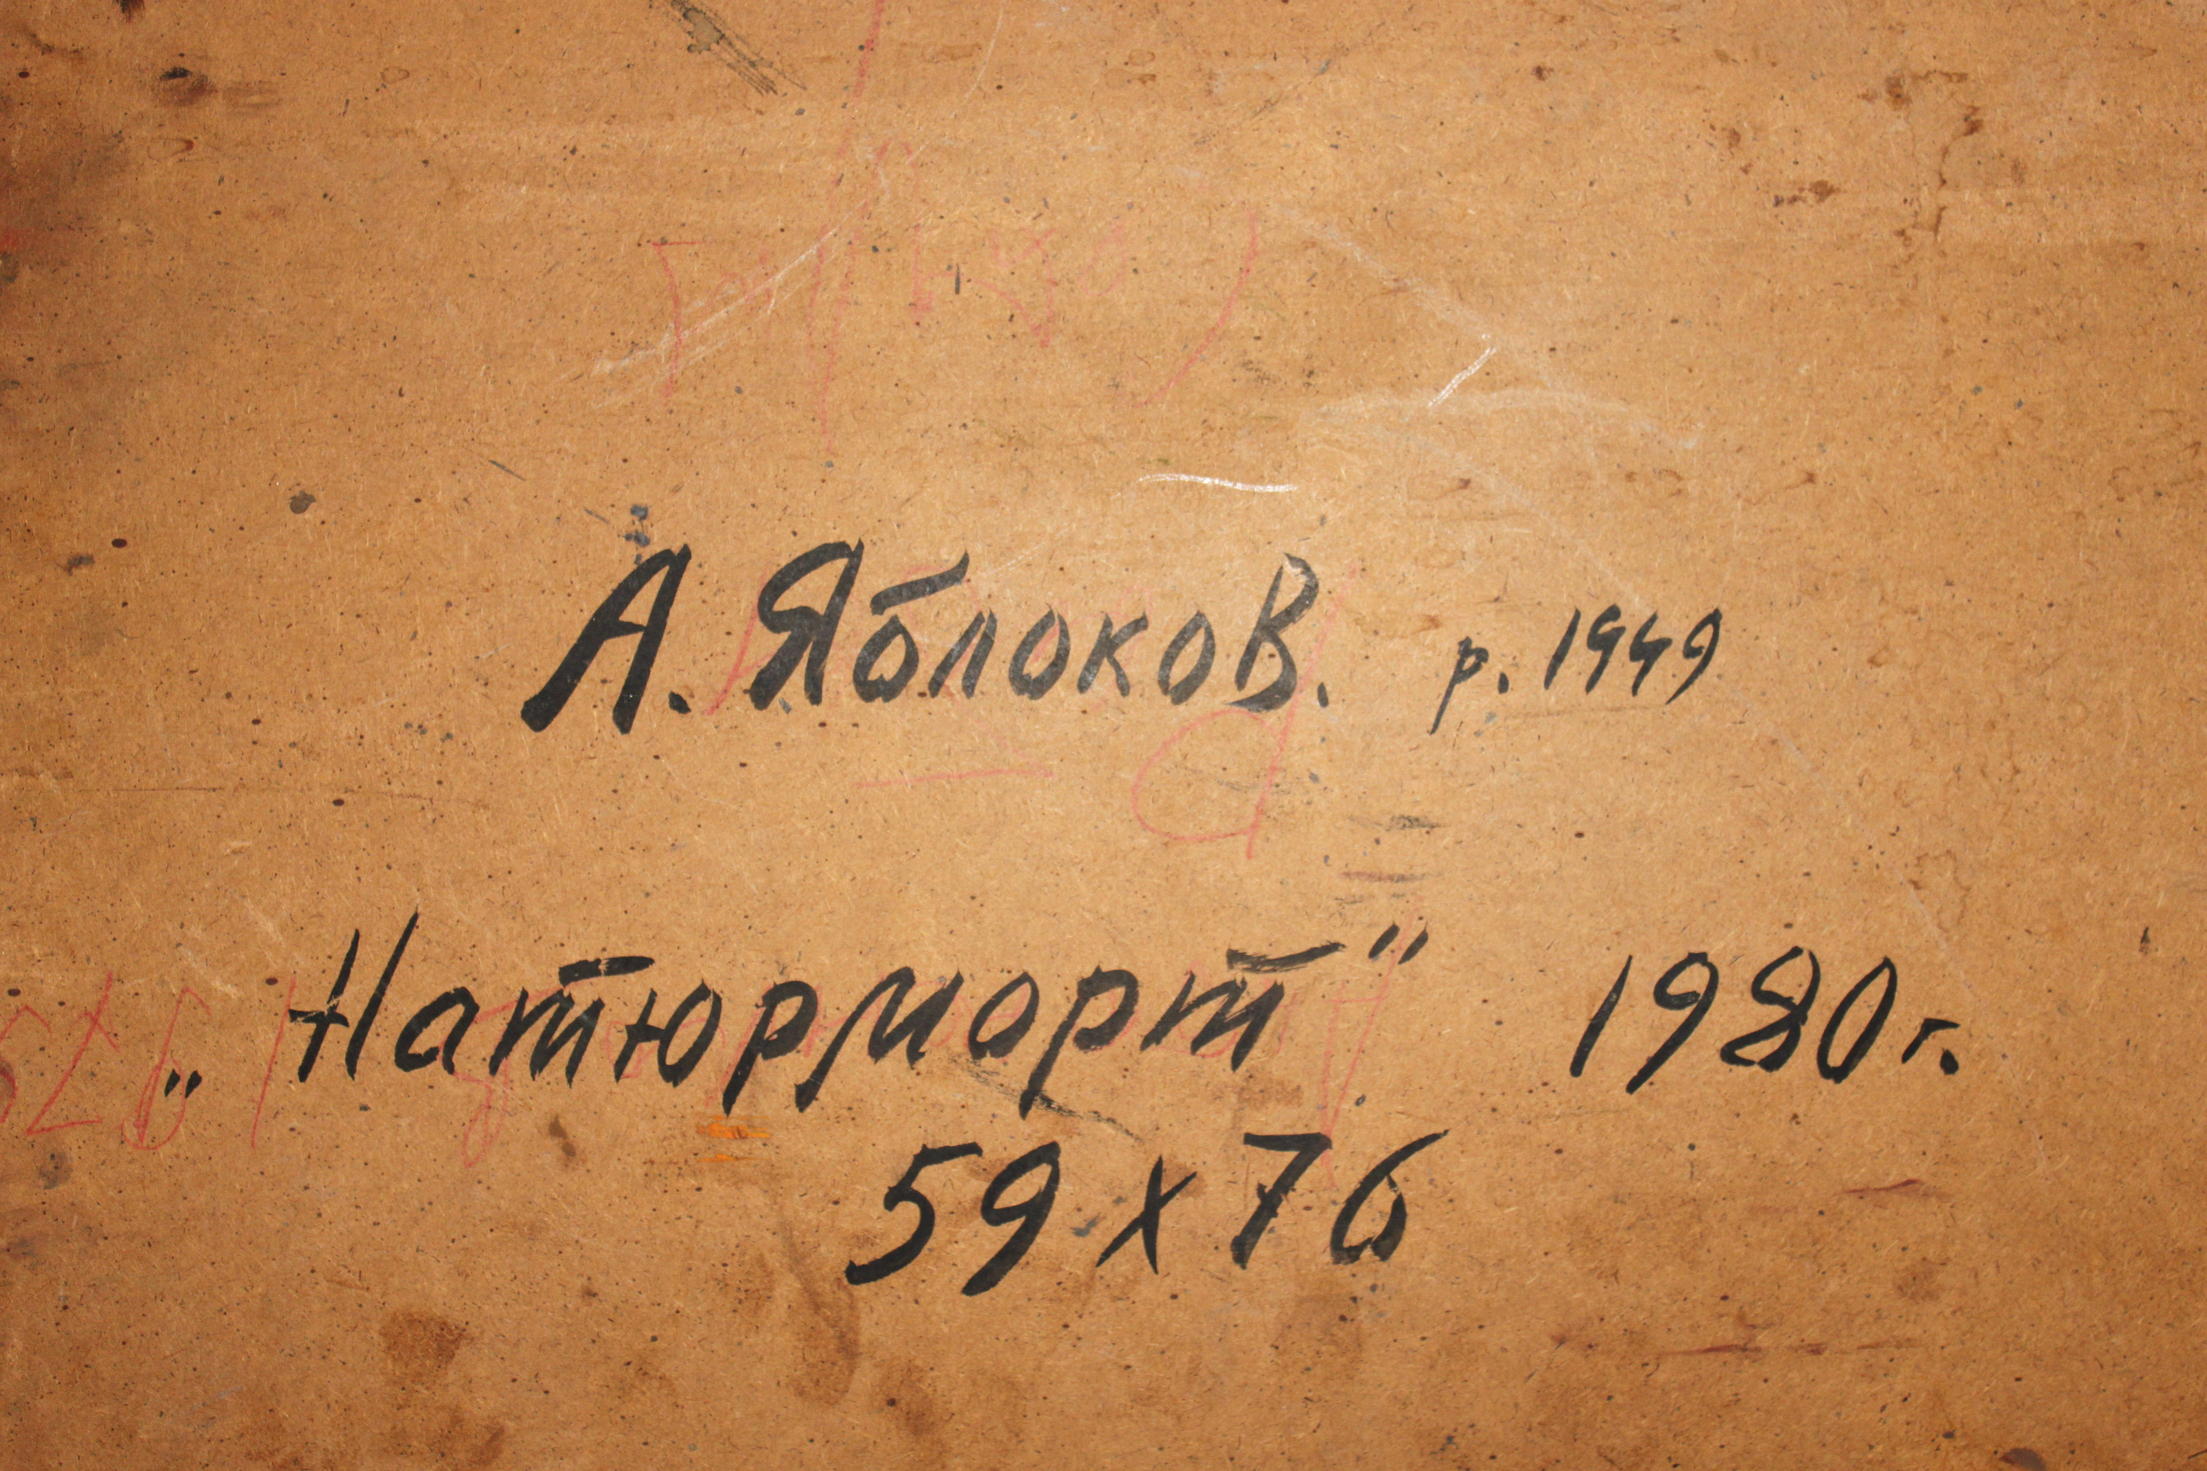 А. Яблоков. р. 1949
„Натюрморт" 1980 г.
59 х 76